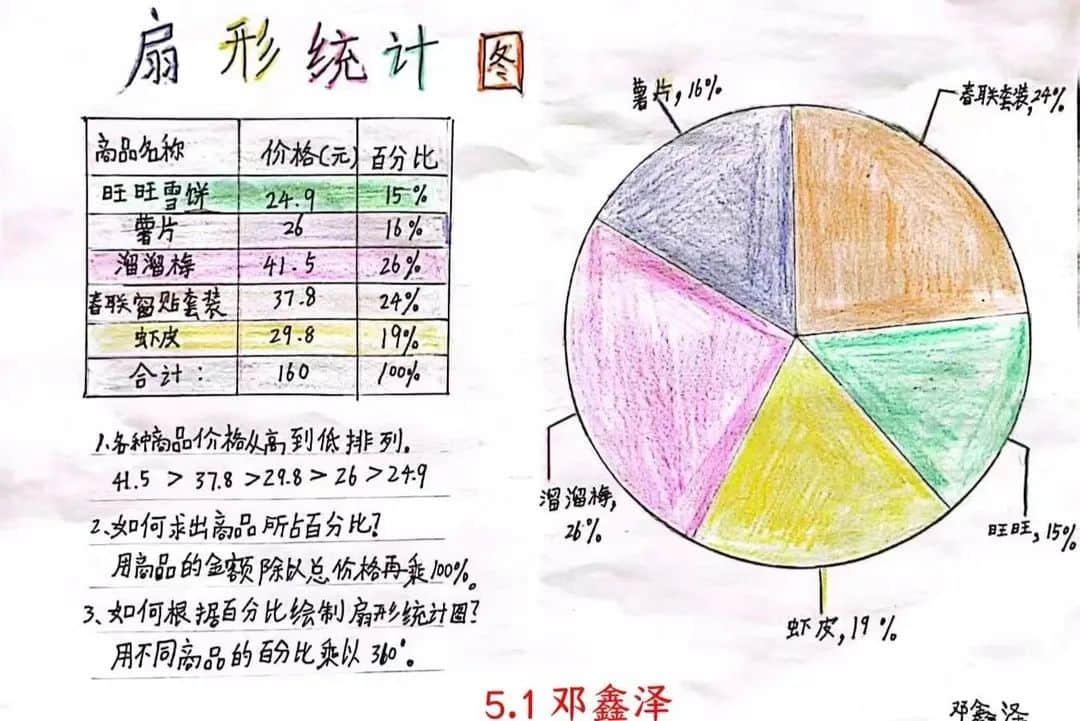 扇形统计图
商品名称 价格(元) 百分比
旺旺雪饼 24.9 15%
薯片 26 16%
溜溜梅 41.5 26%
春联窗贴套装 37.8 24%
虾皮 29.8 19%
合计: 160 100%
1.各种商品价格从高到低排列。
41.5 > 37.8 > 29.8 > 26 > 24.9
2.如何求出商品所占百分比?
用商品的金额除以总价格再乘100%。
3、如何根据百分比绘制扇形统计图?
用不同商品的百分比乘以360°。
薯片,16%
春联套装,24%
溜溜梅,
26%
旺旺,15%
虾皮,19%
5.1邓鑫泽
邓鑫泽